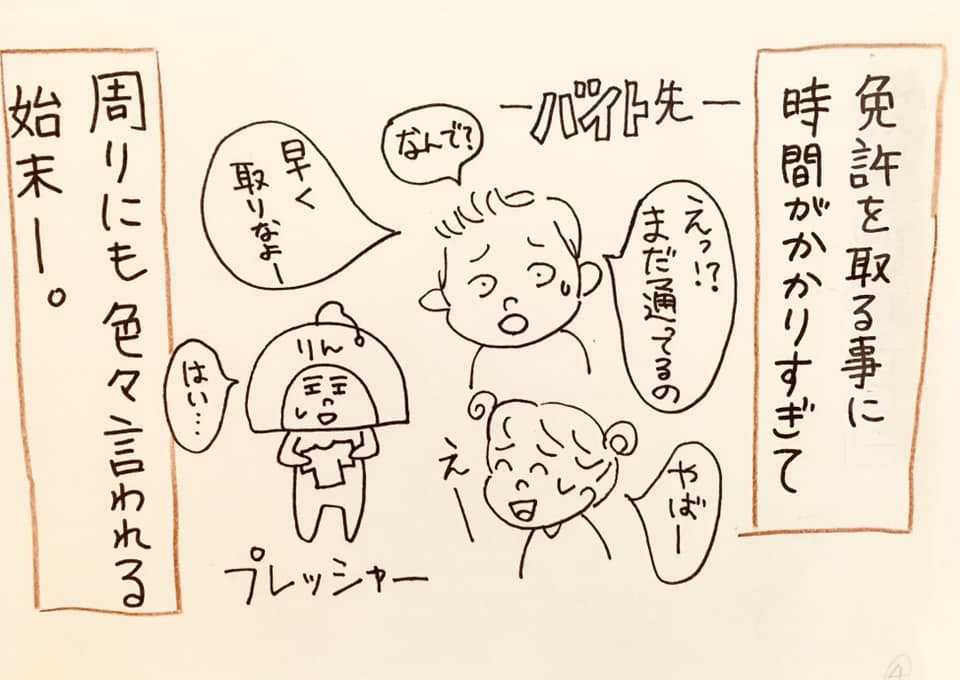 免許を取る事に
時間がかかりすぎて
ーバイト先ー
えっ!?
まだ通ってるの
なんで?
早く
取りなよー
やばー
えー
りん
はい…
プレッシャー
周りにも色々言われる
始末ー。
4